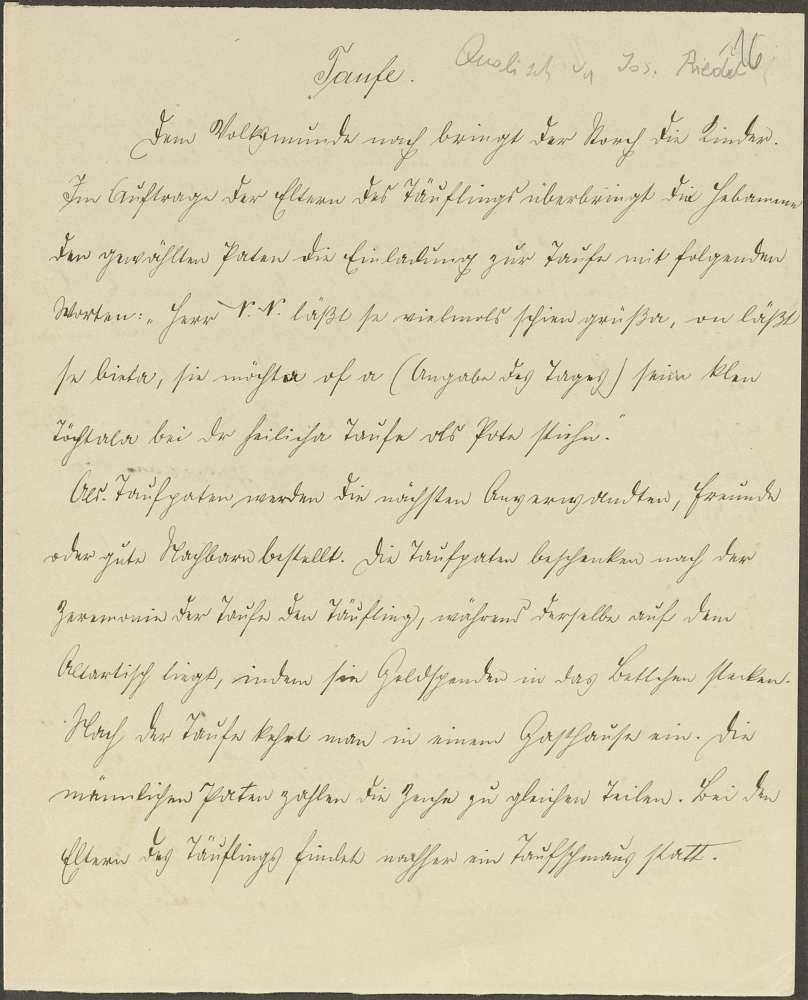 Taufe. Qualisch v Jos. Riedel
Dem Volksmunde nach bringt der Storch die Kinder.
Im Auftrage der Eltern des Täuflings überbringt die Hebamme
den gewählten Paten die Einladung zur Taufe mit folgenden
Worten: „Herr N. N. läßt se vielmols schien grüßa, on läßt
se bieta, sie möchta of a (Angabe des Tages) seina klen
Töchtala bei dr heilicha Taufe ols Pote stiehn."
Als Taufpaten werden die nächsten Anverwandten, Freunde
oder gute Nachbarn bestellt. Die Taufpaten beschenken nach der
Zeremonie der Taufe den Täufling, während derselbe auf dem
Altartisch liegt, indem sie Geldspenden in das Bettchen stecken.
Nach der Taufe kehrt man in einem Gasthause ein. Die
männlichen Paten zahlen die Zeche zu gleichen Teilen. Bei den
Eltern des Täuflings findet nachher ein Taufschmaus statt.